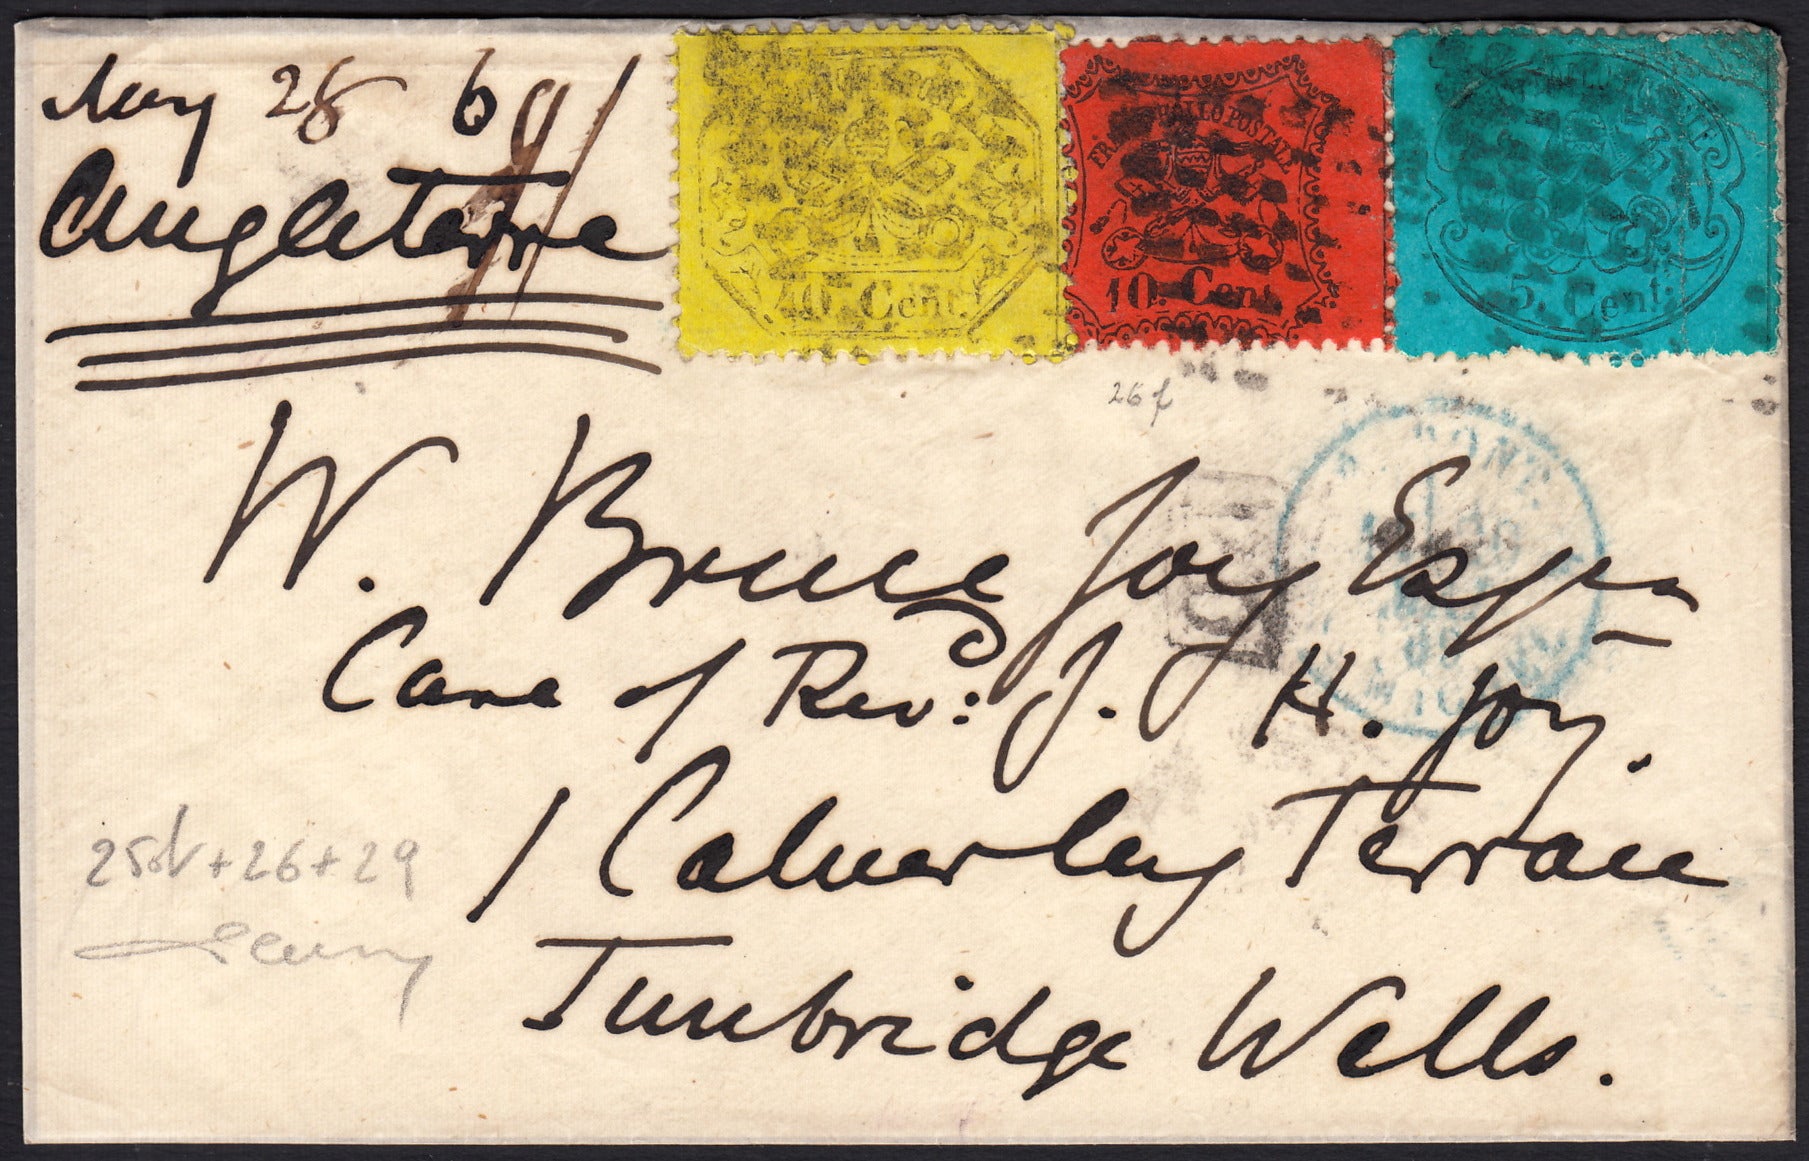 May 28 69
Angleterre
40. Cent.
FRANCOBOLLO POSTALE
10. Cent.
5. Cent.
26 f
W. Bruce Joy Esqre
PD
Care of Revd: J. H. Joy.
1 Calverley Terrace
25 + 26 + 29
Tunbridge Wells.